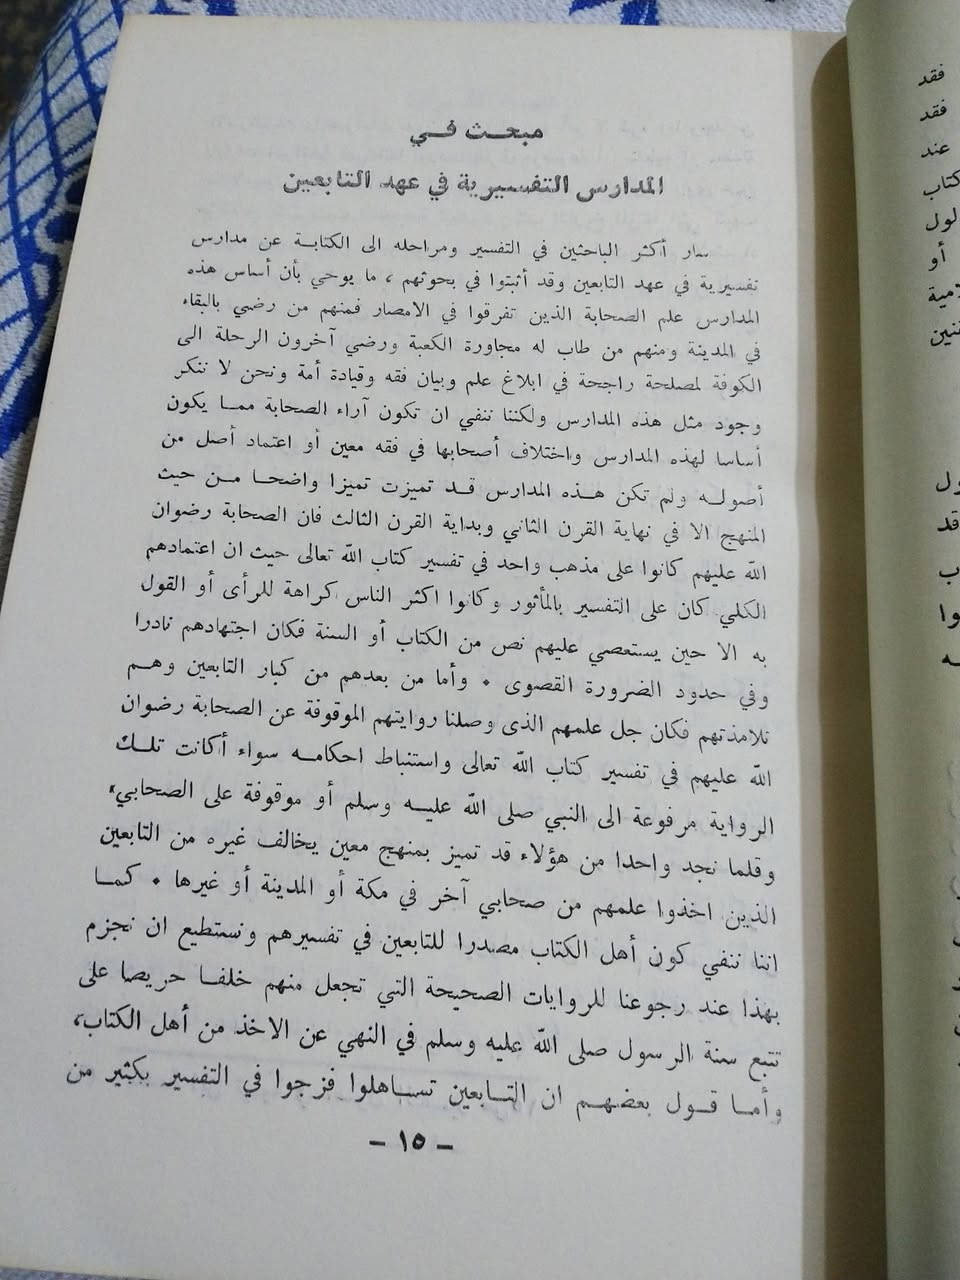 مبحث في
المدارس التفسيرية في عهد التابعين
سار أكثر الباحثين في التفسير ومراحله الى الكتابة عن مدارس
تفسيرية في عهد التابعين وقد أثبتوا في بحوثهم ، ما يوحي بأن أساس هذه
المدارس علم الصحابة الذين تفرقوا في الامصار فمنهم من رضي بالبقاء
في المدينة ومنهم من طاب له مجاورة الكعبة ورضي آخرون الرحلة الى
الكوفة لمصلحة راجحة في ابلاغ علم وبيان فقه وقيادة أمة ونحن لا ننكر
وجود مثل هذه المدارس ولكننا ننفي ان تكون آراء الصحابة مما يكون
أساسا لهذه المدارس واختلاف أصحابها في فقه معين أو اعتماد أصل من
أصوله ولم تكن هذه المدارس قد تميزت تميزا واضحا من حيث
المنهج الا في نهاية القرن الثاني وبداية القرن الثالث فان الصحابة رضوان
الله عليهم كانوا على مذهب واحد في تفسير كتاب الله تعالى حيث ان اعتمادهم
الكلي كان على التفسير بالمأثور وكانوا اكثر الناس كراهة للرأى أو القول
به الا حين يستعصي عليهم نص من الكتاب أو السنة فكان اجتهادهم نادرا
وفي حدود الضرورة القصوى • وأما من بعدهم من كبار التابعين وهم
تلامذتهم فكان جل علمهم الذى وصلنا روايتهم الموقوفة عن الصحابة رضوان
الله عليهم في تفسير كتاب الله تعالى واستنباط احكامه سواء أكانت تلك
الرواية مرفوعة الى النبي صلى الله عليه وسلم أو موقوفة على الصحابي،
وقلما نجد واحدا من هؤلاء قد تميز بمنهج معين يخالف غيره من التابعين
الذين اخذوا علمهم من صحابي آخر في مكة أو المدينة أو غيرها • كما
اننا ننفي كون أهل الكتاب مصدرا للتابعين في تفسيرهم ونستطيع ان نجزم
بهذا عند رجوعنا للروايات الصحيحة التي تجعل منهم خلفا حريصا على
تتبع سنة الرسول صلى الله عليه وسلم في النهي عن الاخذ من أهل الكتاب،
وأما قول بعضهم ان التابعين تساهلوا فزجوا في التفسير بكثير من
– ١٥ –
فقد
فقد
عند